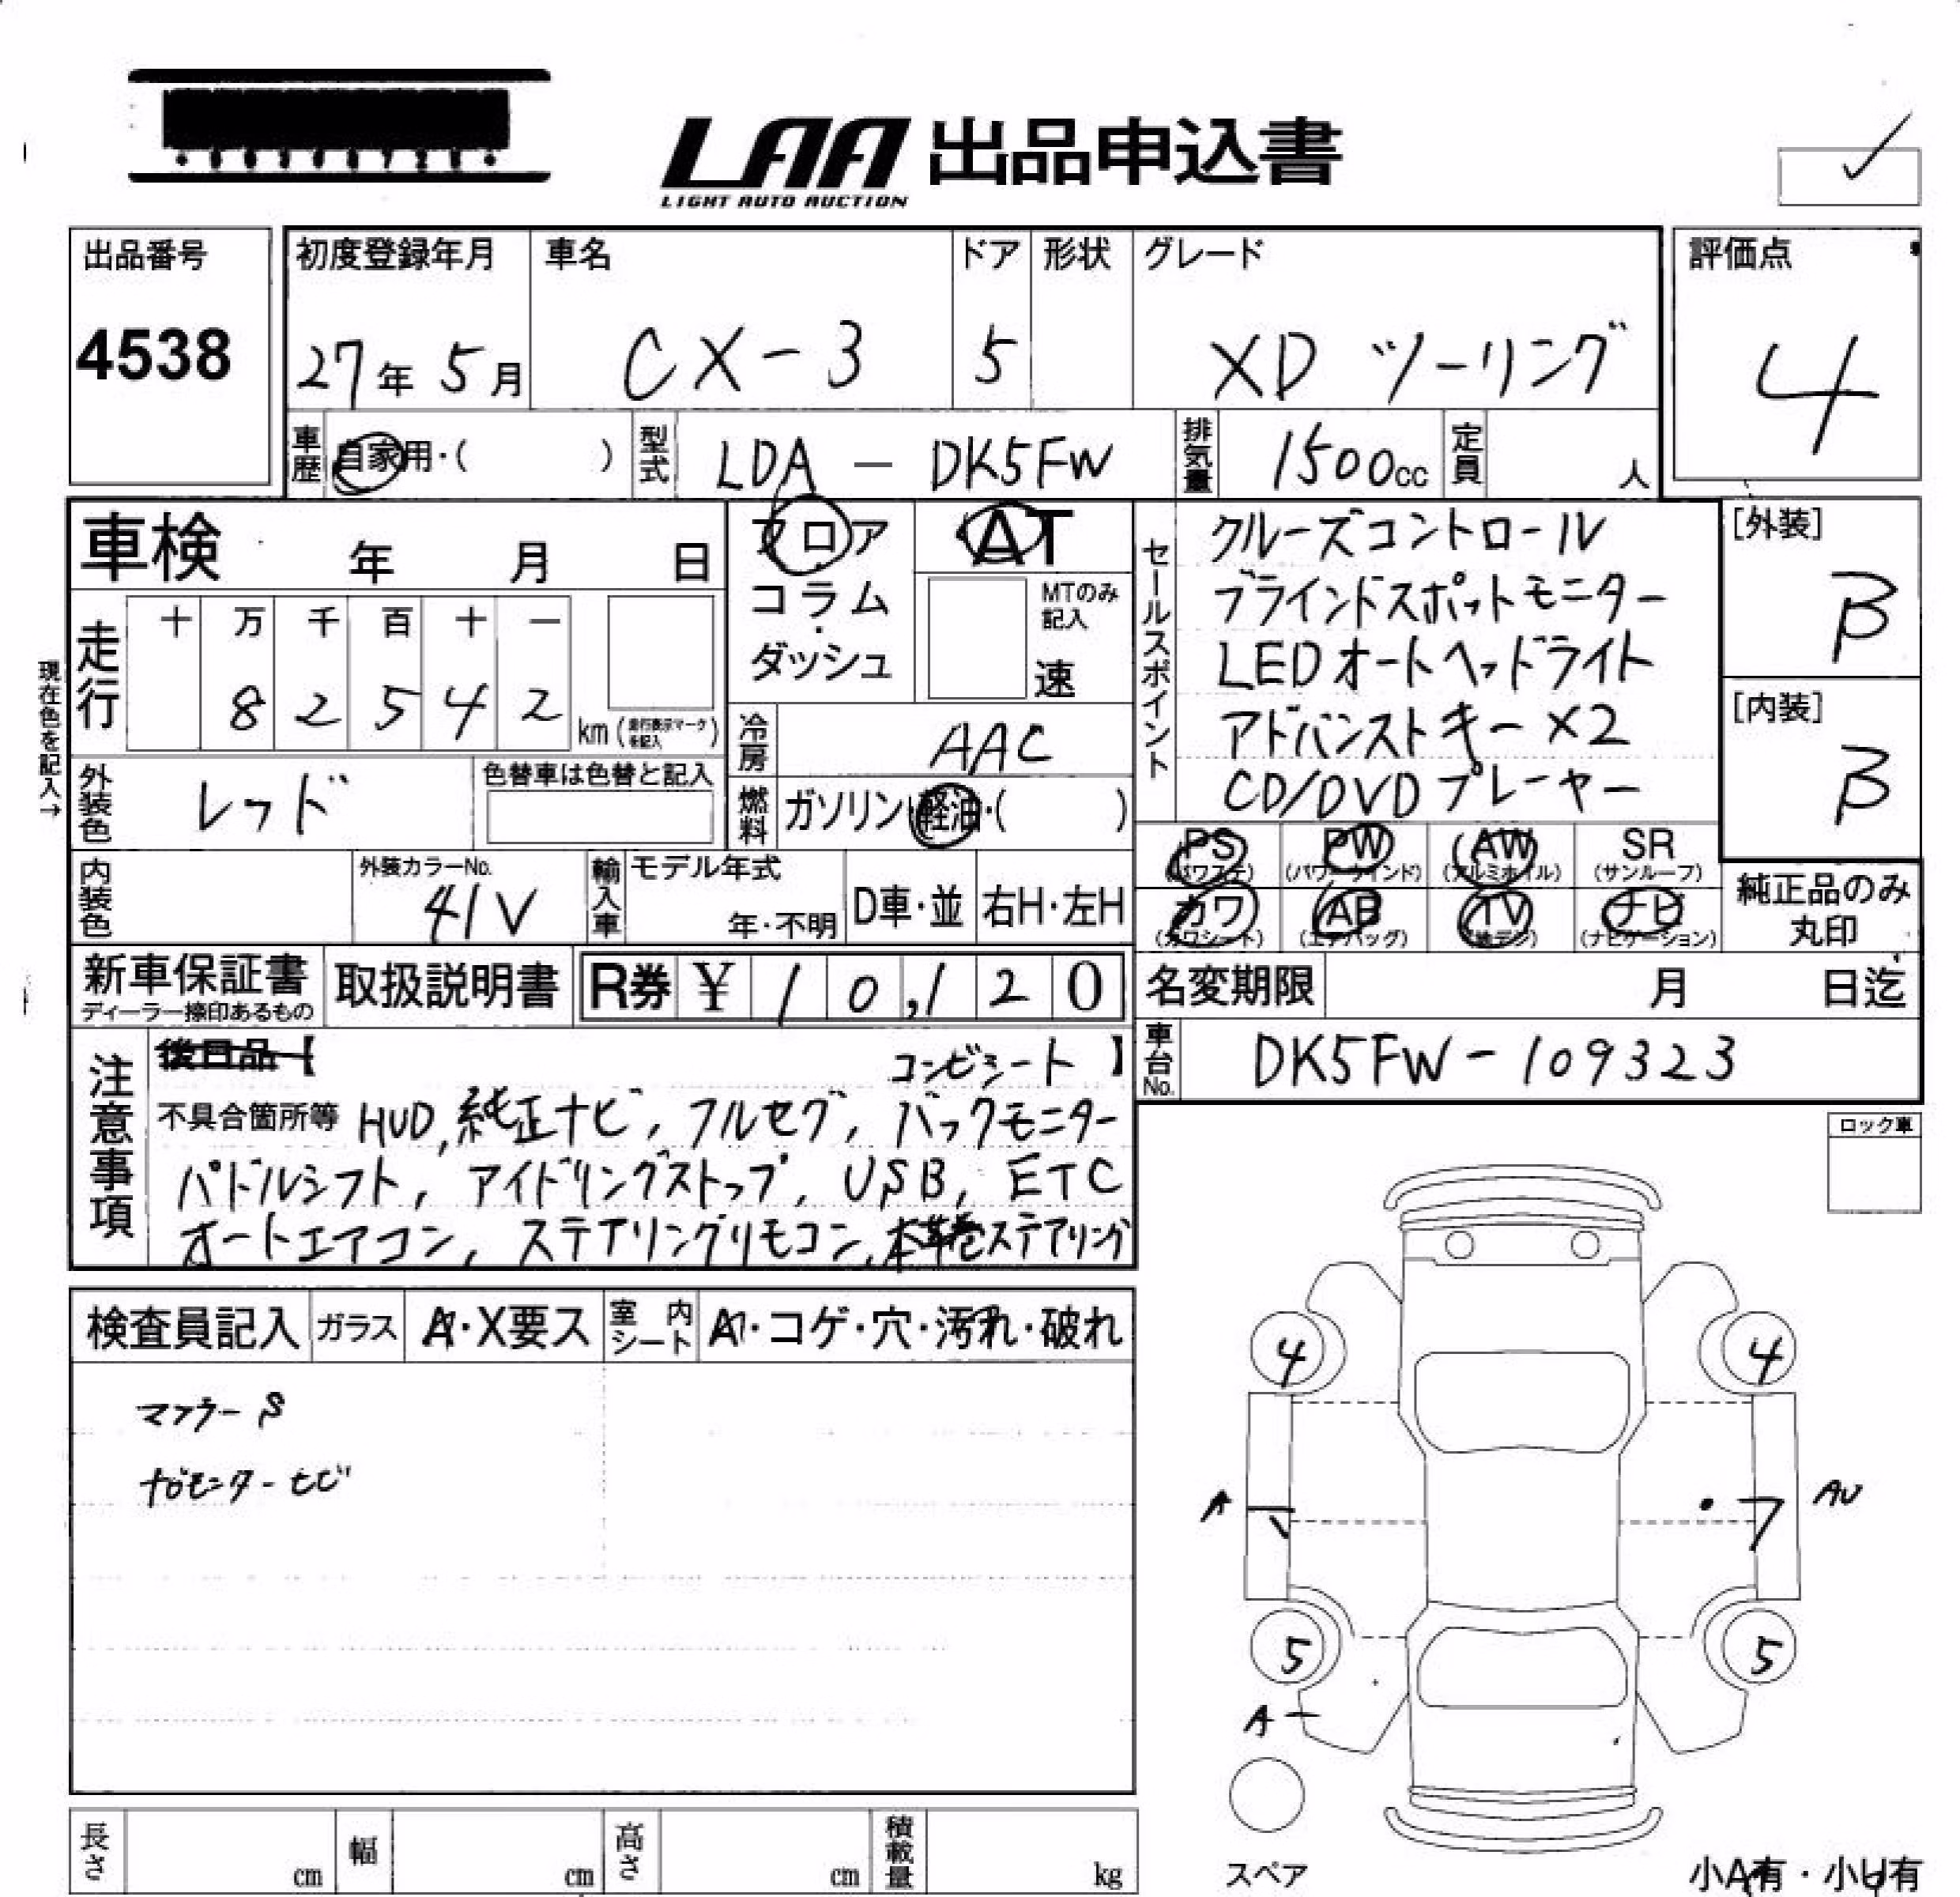 LAA 出品申込書
LIGHT AUTO AUCTION
出品番号
4538
初度登録年月
27年 5月
車名
CX-3
ドア
5
形状
グレード
XD ツーリング
評価点
4
車歴
自家用・( )
型式
LDA - DK5FW
排気量
1500cc
定員
人
車検 年 月 日
フロア
コラム
・
ダッシュ
AT
MTのみ
記入
速
セールスポイント
クルーズコントロール
ブラインドスポットモニター
LEDオートヘッドライト
アドバンストキー×2
CD/DVDプレーヤー
[外装]
B
[内装]
B
現在色を記入→
走行
十 万 千 百 十 一
8 2 5 4 2
km(走行表示マークを記入)
冷房
AAC
外装色
レッド
色替車は色替と記入
燃料
ガソリン・軽油・( )
PS PW AW SR
(パワステ) (パワーウインド) (アルミホイル) (サンルーフ)
カワ AB TV ナビ
(カワシート) (エアバッグ) (地デジ) (ナビゲーション)
純正品のみ
丸印
内装色
外装カラーNo.
41V
輸入車
モデル年式
年・不明
D車・並
右H・左H
新車保証書
ディーラー捺印あるもの
取扱説明書
R券 ¥ 10,120
名変期限 月 日迄
車台No.
DK5FW-109323
注意事項
後日品【 コンビシート 】
不具合箇所等 HUD, 純正ナビ, フルセグ, バックモニター
パドルシフト, アイドリングストップ, USB, ETC
オートエアコン, ステアリングリモコン, 本革巻ステアリング
ロック車
検査員記入
ガラス
A・X要ス
室内シート
A・コゲ・穴・汚れ・破れ
マフラー S
ナビモニターヒビ
4
4
A
AU
5
5
A
スペア
小A有・小U有
長さ cm
幅 cm
高さ cm
積載量 kg